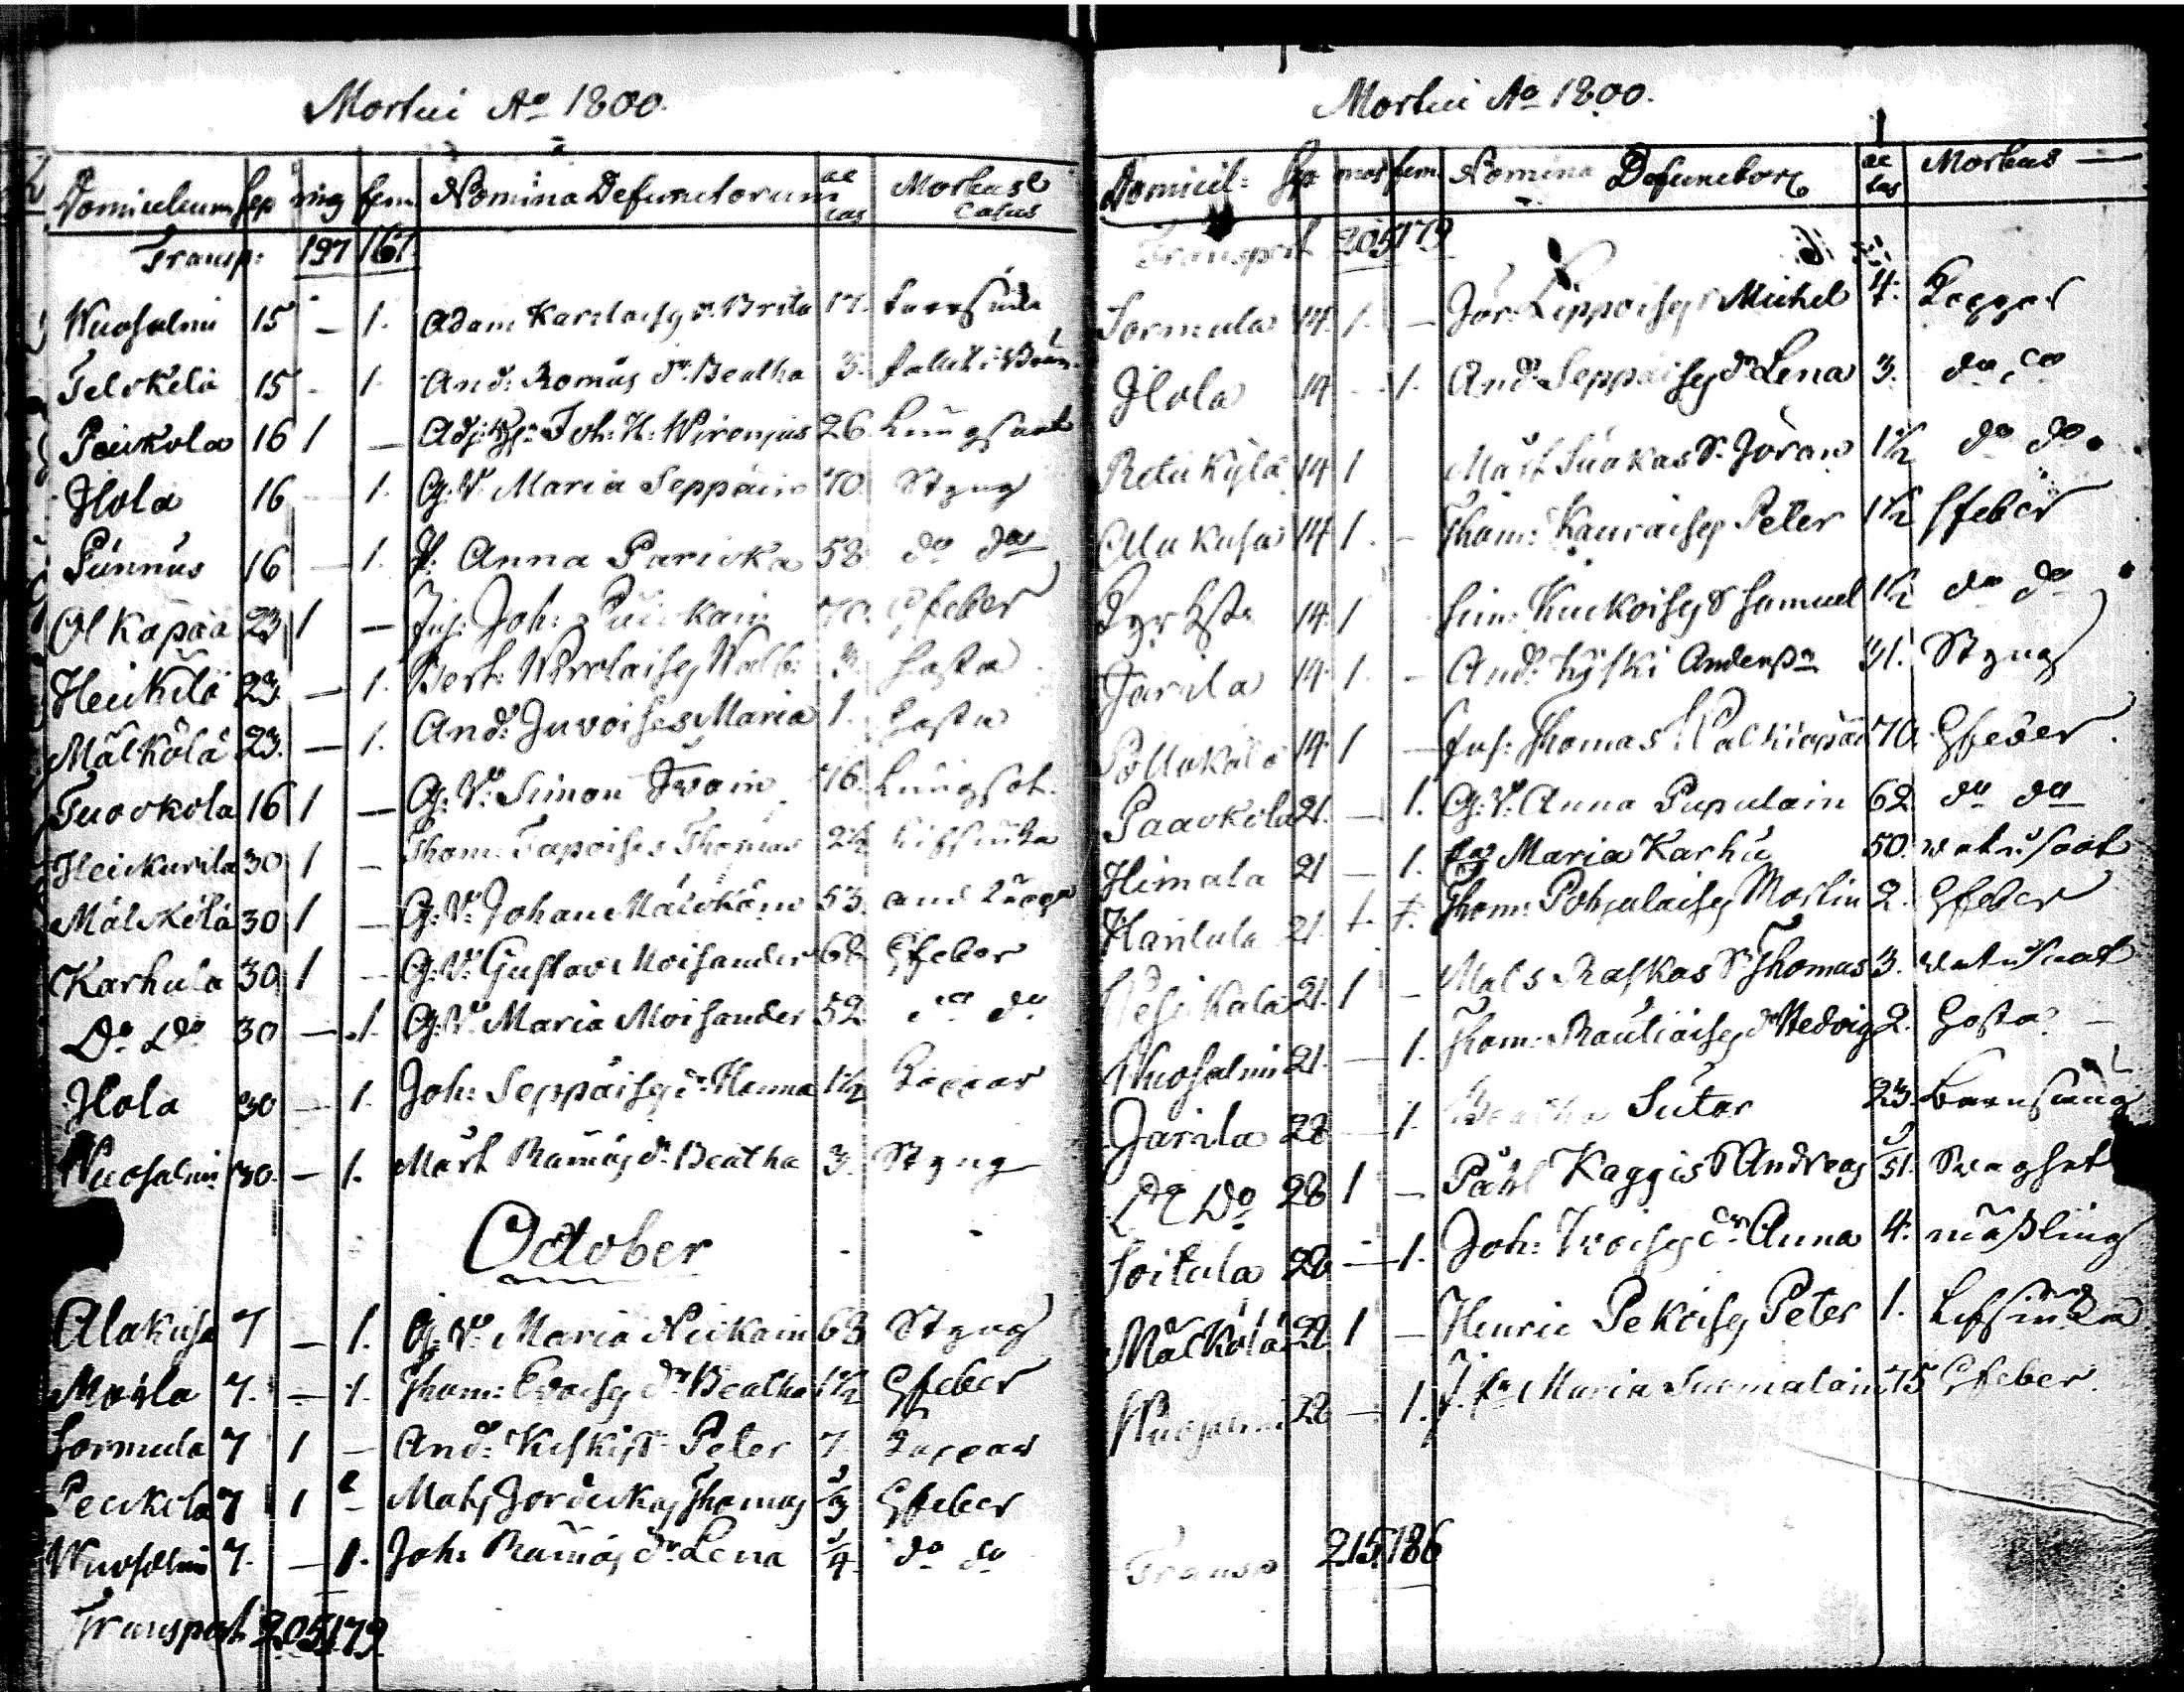 Mortui Ao 1800.
Domicilium Sep mas fem. Nomina Defunctorum aetas Morbus & Casus
Transp: 197 161
Wuosalmi 15 – 1. Adam Karvlaisg dr. Brita 17.
Telckelä 15 - 1. And: Romus dr. Beatha 3.
Paukola 16 1 – Joh: H: Wirenius 26. Lungsot
Ilola 16 – 1. G: V. Maria Seppäin 70. Styng
Punnus 16 – 1. Anna Paricka 58 do do
Olkapää 23 1 – Inh: Joh: 70. Gfeber
Heickilä 23 – 1. Bert: Wirolaisg Walb: 3. hosta
Mälkölä 23. – 1. And: Juvoises Maria 1. hosta
Tuockola 16 1 – G: V: Simon Iwoin 16. Lungsot.
Heickurila 30 1 – Thom: Tapoises Thomas 2½
Mälckilä 30 1 – G: V: Johan 53.
Karhula 30 1 – G: V: Gustav Moisander 62. Gfeber
Do Do 30 – 1. G: V: Maria Moisander 52. do do
Ilola 30 – 1. Joh: Seppäisg dr. Hanna 1½ Koppor
Wuosalmi 30. – 1. Mårt Rämäs dr. Beatha 3. Styng
October
Alakusa 7 – 1. G: V: Maria Nickain 63 Styng
Moisla 7. – 1. Thom: Evoisg dr. Beatha 1½ Gfeber
Sormula 7 1 – And: Kiskis S. Peter 7. Koppor
Peukola 7 1 – Mats Jordickas Thomas 3 Gfeber
Wuosalmi 7. – 1. Joh: Rämäs dr. Lena 4. do do
Transport 205 179
Mortui Ao 1800.
Domicil: mas fem Nomina Defunctor aetas Morbus –
Transport 205 179
Sormula 14. 1. – Jör. Lippoisg Michel 4. Koppor
Ilola 14 - 1. And: Seppäisg dr Lena 3. do do
Retukylä 14 1 Mårt Suokas S. Jöran 1½ do do
Alakusa 14 1. – Thom: Kauraisg Peter 1½ Gfeber
14 1 Sim: Kuckoisg S Samuel 1½ do do
Jarila 14. 1. – And: Kyski Andersn 31. Styng
14 1 – Inh: Thomas 70. Gfeber.
Paackola 21. – 1. G: V. Anna Pupulain 62. do do
Himala 21 – 1. Maria Karhu 50. watusoot
Kantula 21. Thom: Pohjulaisg Martin 2. Gfeber
Pesikala 21. 1 – Mats Raskas S. Thomas 3. watusoot
Wuosalmi 21. – 1. Thom: Rautiaisg dr Hedvig 2. hosta –
Jarila 28 – 1. Beatha Sutar 23. Barnsäng
Do Do 28 1 – Påhl Kaggis S Andreas
Soitula 28 – 1. Joh: Iwoisg dr Anna 4. mäßling
Mälkölä 28 1 – Henric Pekoisg Peter 1.
Wuosalmi 28 – 1. Maria Suomalain 75 Gfeber.
Transp 215 186